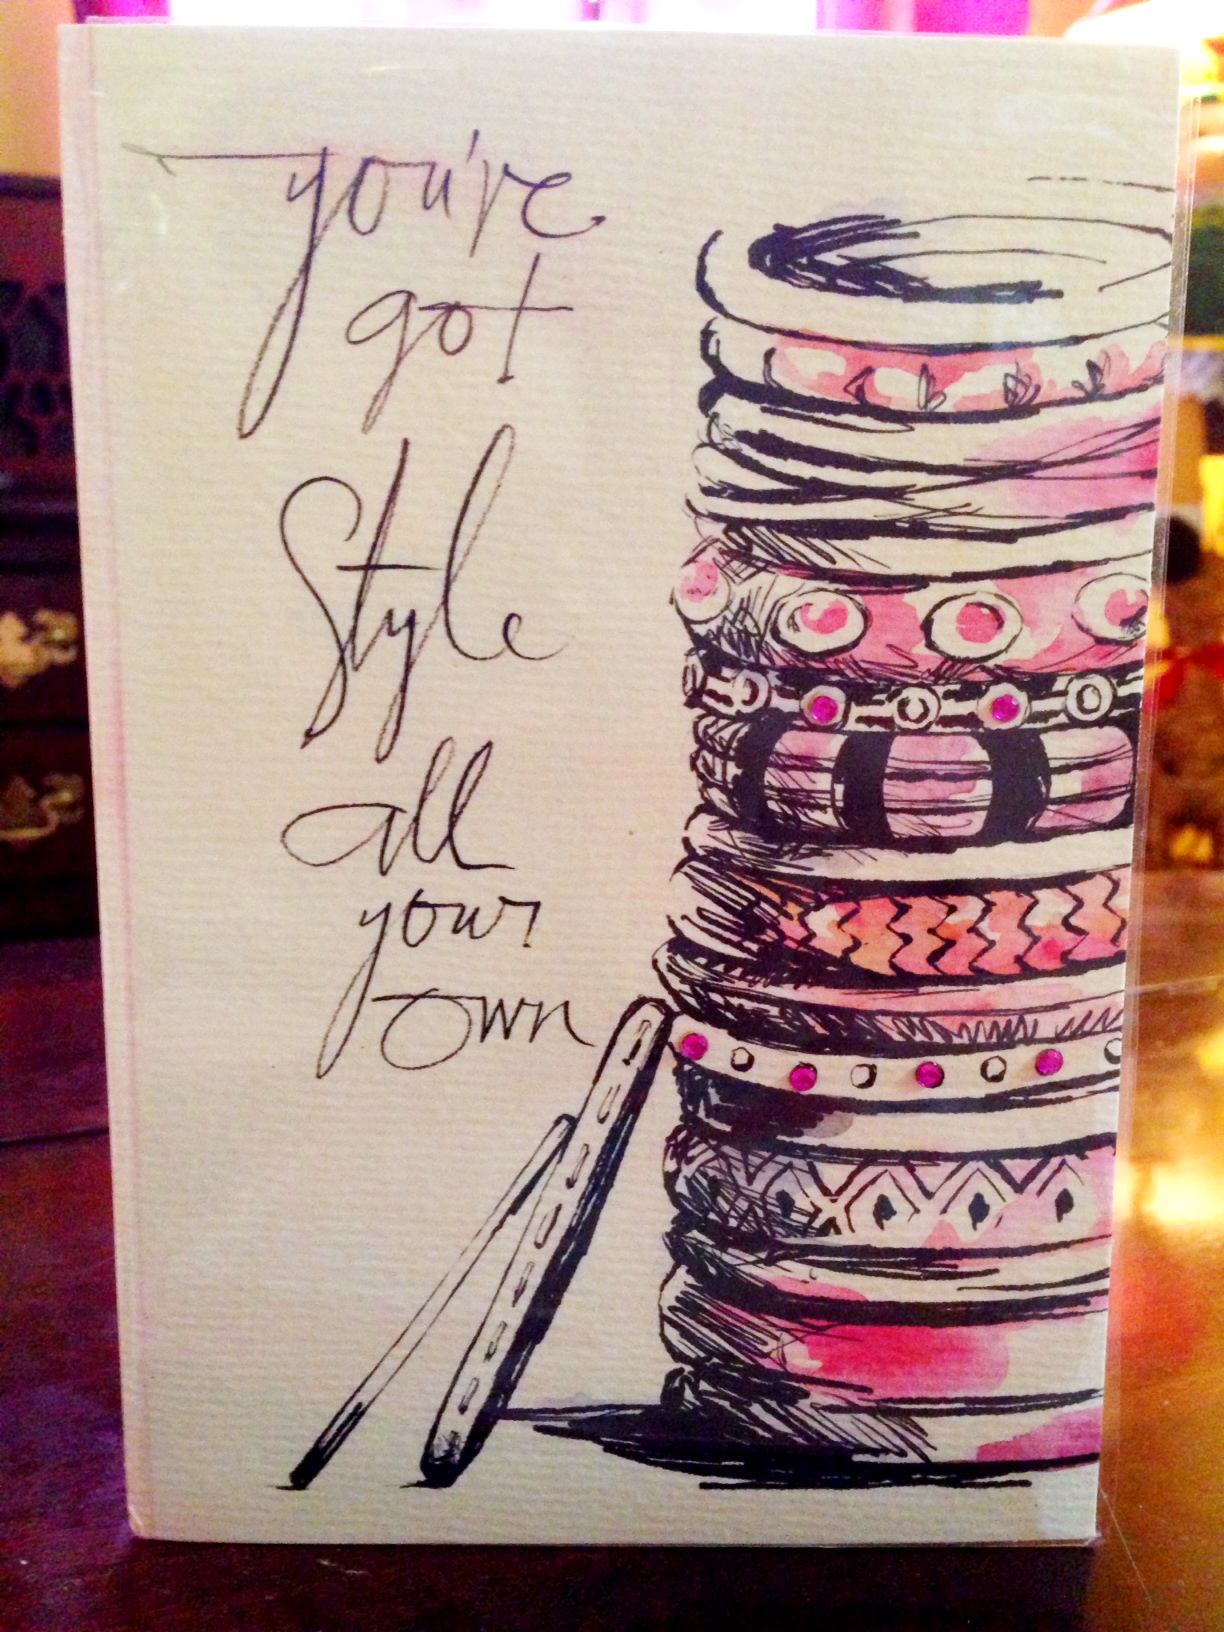 you've
got
Style
all
your
own